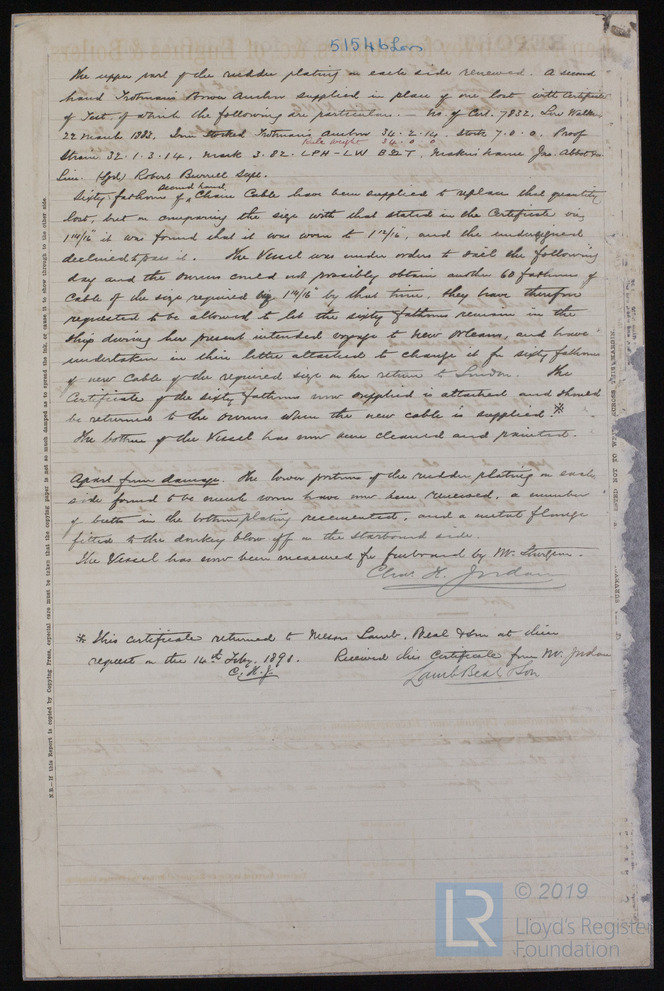 51546 Lon
The upper part of the rudder plating on each side renewed. A second
hand Trotman's Bower Anchor supplied in place of one lost with Certificate
of Test of which the following are particulars. — No. of Cert. 7832, Low Walker
22 March 1883. Iron stocked Trotman's Anchor 34. 2. 14. Stock 7. 0. 0. Proof
Rule weight 34. 0. 0
Strain 32. 1. 3. 14. Mark 3. 82. LPH–LW B&T. Makers name Jno. Abbot &
(Sgd) Robert Burrell Supt.
second hand
Sixty fathoms of Chain Cable have been supplied to replace that quantity
lost, but on comparing the size with that stated in the Certificate viz
1 14/16" it was found that it was worn to 1 12/16", and the undersigned
declined to pass it. The Vessel was under orders to sail the following
day and the Owners could not possibly obtain another 60 fathoms of
Cable of the size required viz 1 14/16" by that time, they have therefore
requested to be allowed to let the sixty fathoms remain in the
Ship during her present intended voyage to New Orleans, and have
undertaken in their letter attached to change it for sixty fathoms
of new Cable of the required size on her return to London. The
Certificate of the sixty fathoms now supplied is attached and should
be returned to the Owners when the new cable is supplied. *
The bottom of the Vessel has now been cleaned and painted.
Apart from damage. The lower portions of the rudder plating on each
side found to be much worn have now been renewed, a number
of butts in the bottom plating recemented, and a metal flange
fitted to the donkey blow off on the starboard side.
The Vessel has now been measured for freeboard by Mr.
Chas. H. Jordan
* This certificate returned to Messrs Lamb, Beal & Son at their
request on the 14th Feby. 1890. Received this Certificate from Mr. Jordan
C. H. J.
Lamb Beal & Son
N.B.—If this Report is copied by Copying Press, especial care must be taken that the copying paper is not so much damped as to spread the ink, or cause it to show through to the other side.
LR
© 2019
Lloyd's Register
Foundation